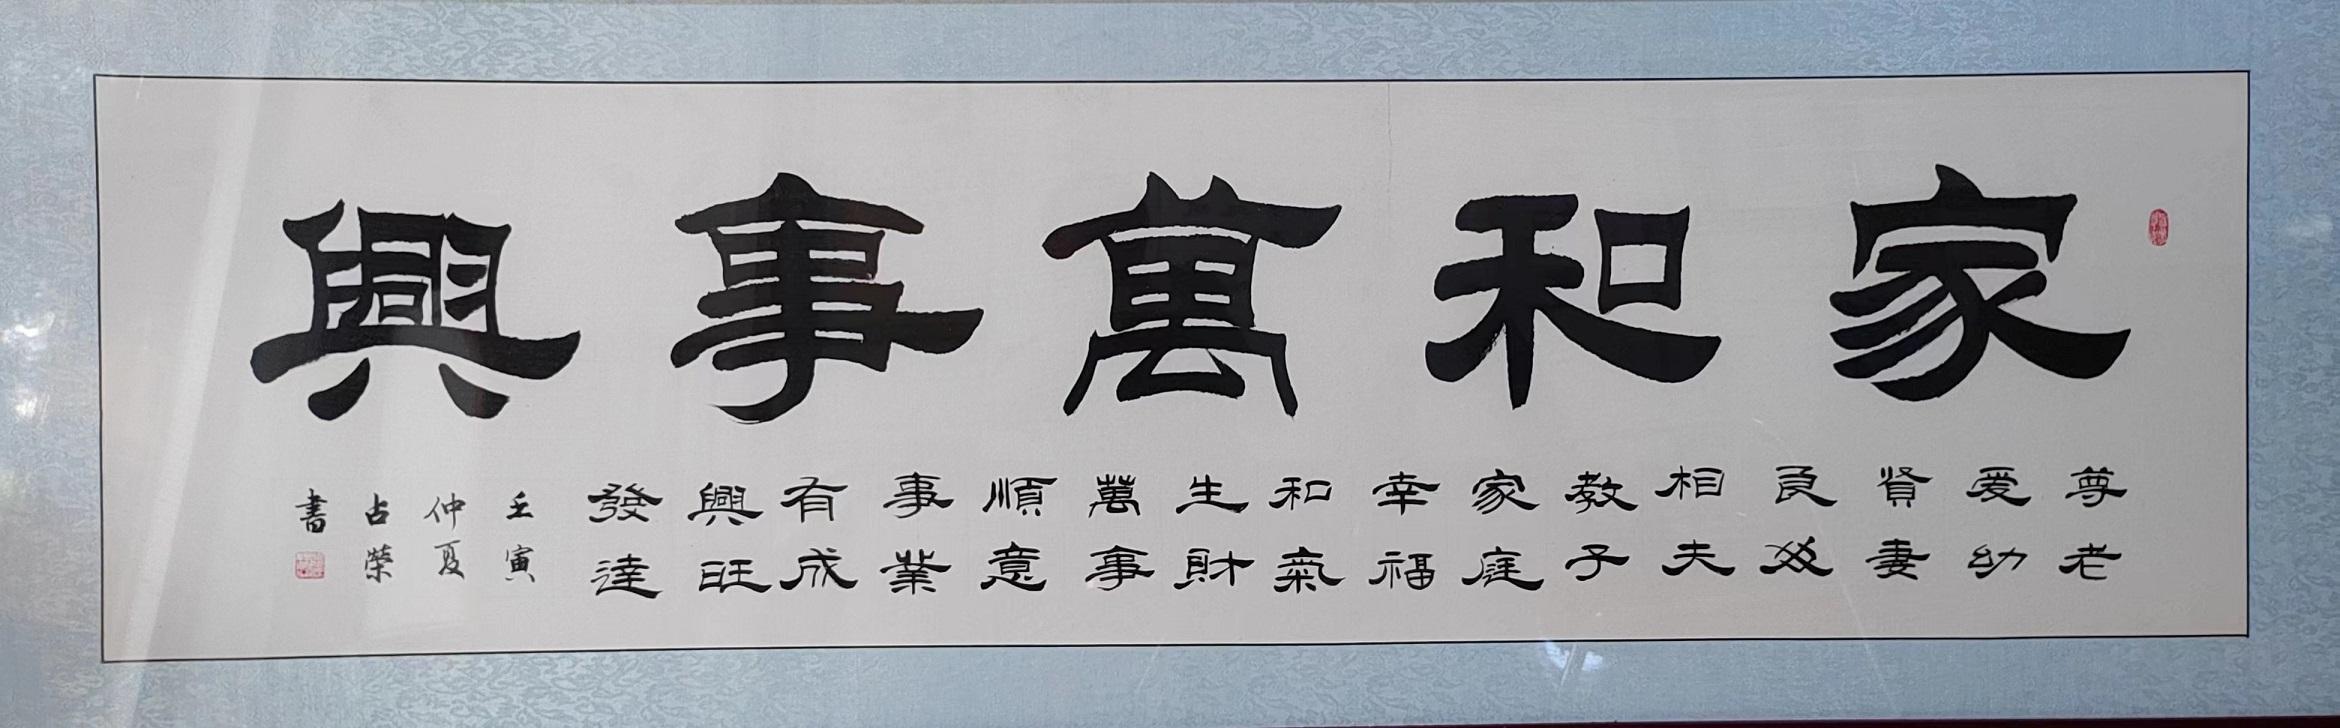 家和萬事興
尊老
爱幼
賢妻
良
相夫
教子
家庭
幸福
和氣
生財
萬事
順意
事業
有成
興旺
發達
壬寅
仲夏
占榮
書